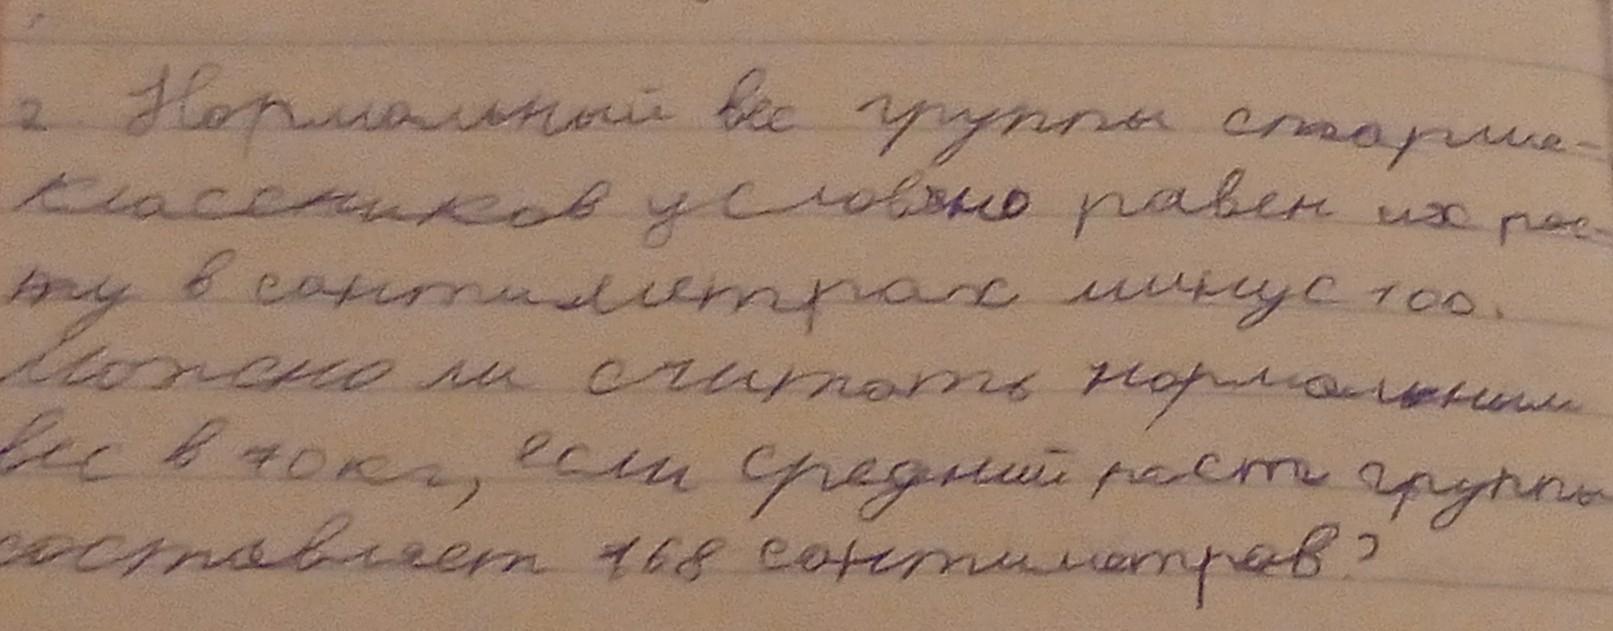 2. Нормальный вес группы старше-
классников условно равен их рос-
ту в сантиметрах минус 100.
Можно ли считать нормальным
вес в 70 кг, если средний рост группы
составляет 168 сантиметров?